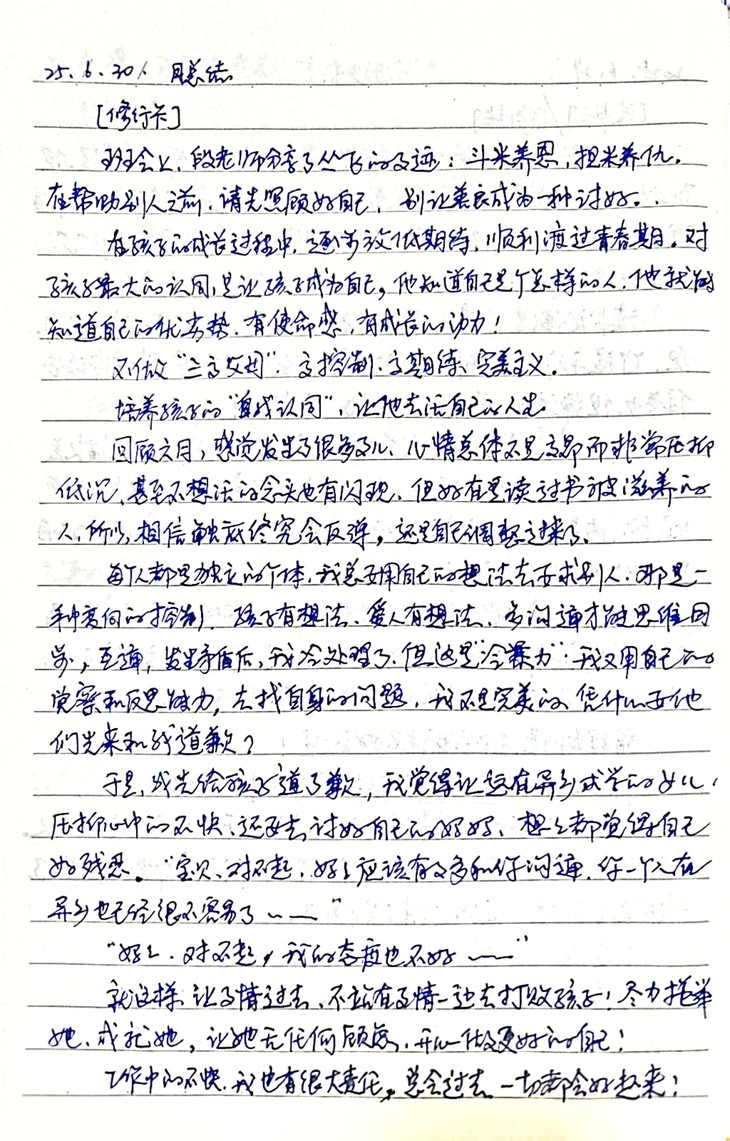 25.6.30/ 月总结
[修行卡]
班会上，段老师分享了丛飞的事迹：斗米养恩，担米养仇。
在帮助别人之前，请先照顾好自己，别让善良成为一种讨好。
在孩子的成长过程中，逐步放低期待，顺利渡过青春期。对
孩子最大的认同，是让孩子成为自己，他知道自己是个怎样的人，他就能
知道自己的优劣势，有使命感，有成长的动力！
不做“三高父母”：高控制、高期待、完美主义。
培养孩子的“自我认同”，让他去活自己的人生
回顾六月，感觉发生了很多事儿，心情总体不是高昂而非常压抑
低沉，甚至不想活的念头也有闪现，但好在是读过书被滋养的
人，所以，相信触底终究会反弹，还是自己调整过来了。
每个人都是独立的个体，我总要用自己的想法去要求别人，那是一
种变向的控制，孩子有想法、爱人有想法、多沟通才能思维同
步，互通，发生矛盾后，我冷处理了，但这是“冷暴力”，我又用自己的
觉察和反思能力，去找自身的问题，我不是完美的，凭什么要他
们先来和我道歉？
于是，我先给孩子道了歉，我觉得让远在异乡求学的女儿，
压抑心中的不快，还要去讨好自己的妈妈，想想都觉得自己
好残忍。“宝贝，对不起，妈妈应该有事多和你沟通，你一个人在
异乡也已经很不容易了——”
“妈妈，对不起，我的态度也不好——”
就这样，让事情过去，不站在事情一边去打败孩子！尽力托举
她、成就她，让她无任何顾虑，开心做更好的自己！
工作中的不快，我也有很大责任，总会过去，一切都会好起来！